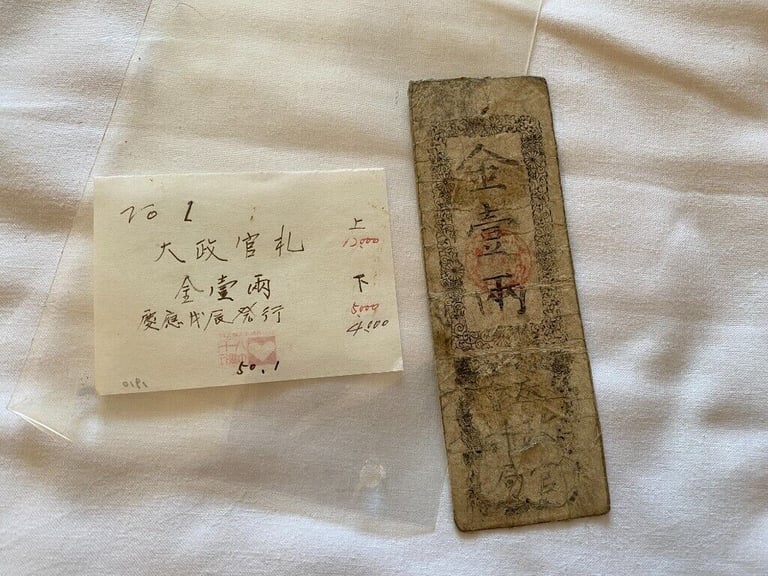 No 1
大政官札 上
12000
金壹兩 下
慶應戊辰発行 5000
4000
50.1
0191
金壹兩